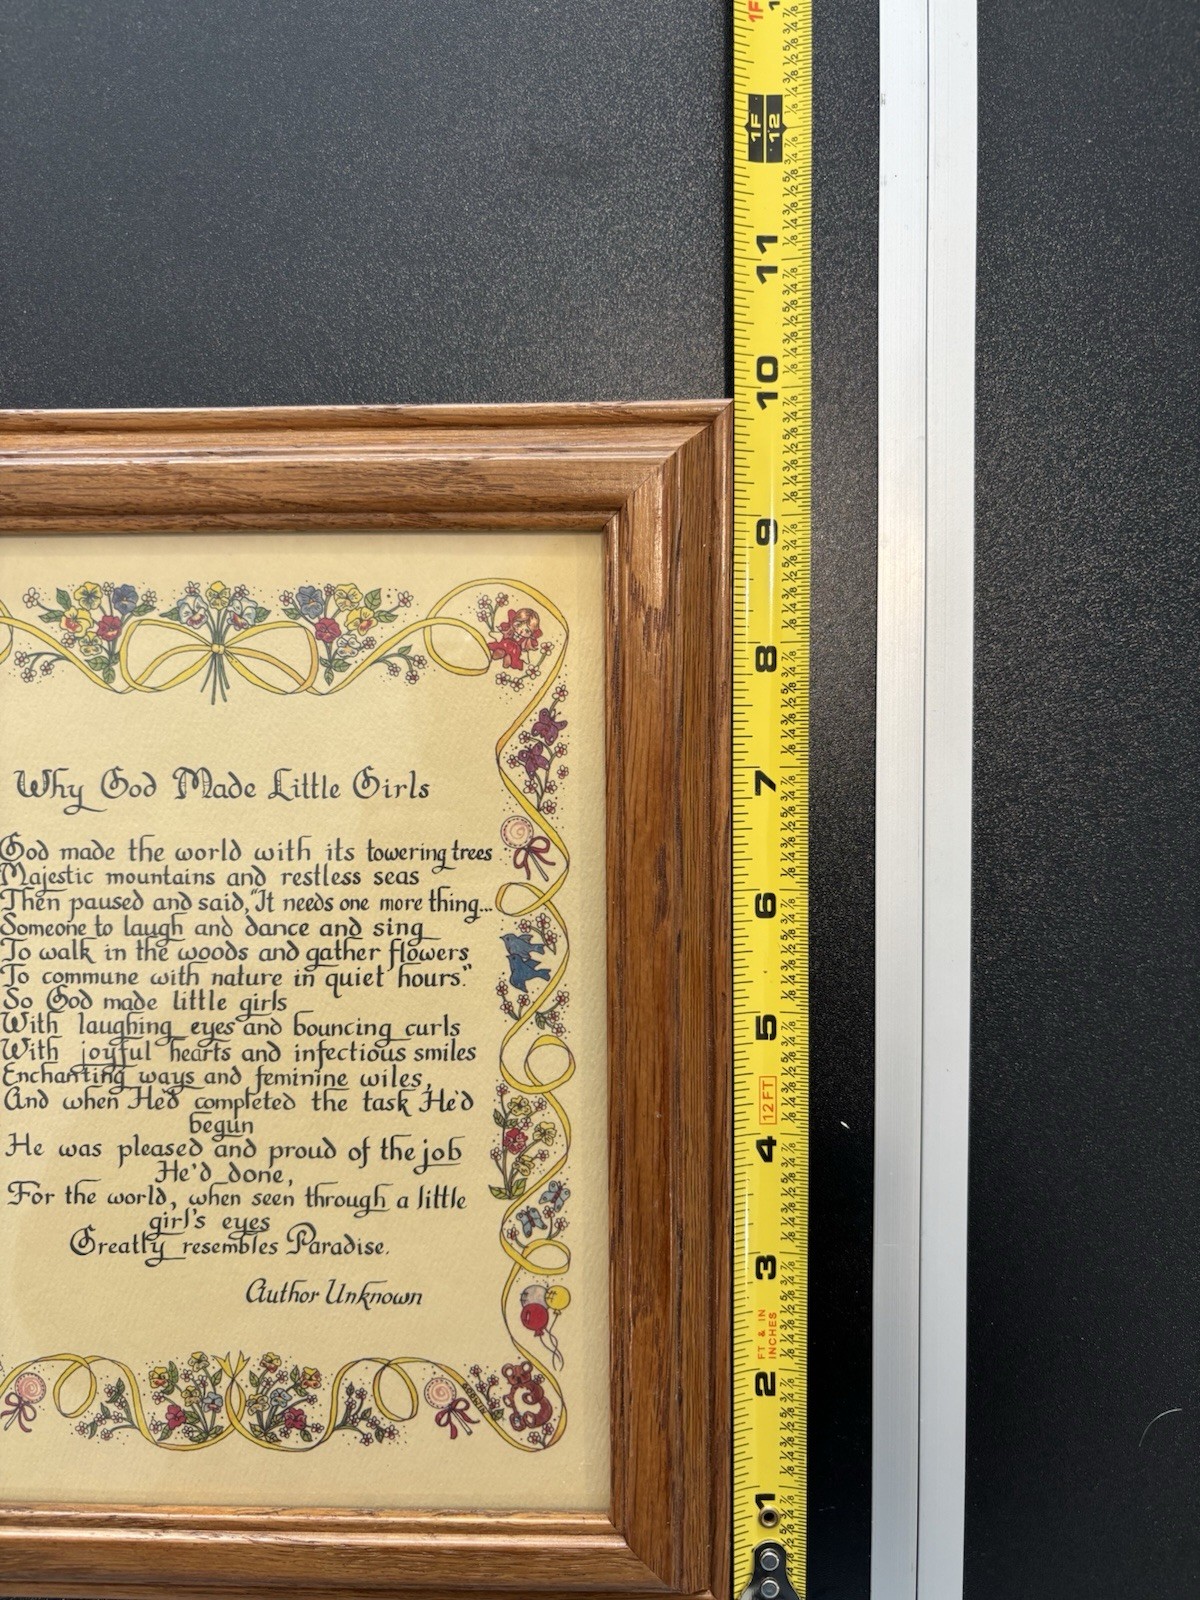 Why God Made Little Girls
God made the world with its towering trees
Majestic mountains and restless seas
Then paused and said, "It needs one more thing...
Someone to laugh and dance and sing
To walk in the woods and gather flowers
To commune with nature in quiet hours."
So God made little girls
With laughing eyes and bouncing curls
With joyful hearts and infectious smiles
Enchanting ways and feminine wiles,
And when He'd completed the task He'd
begun
He was pleased and proud of the job
He'd done,
For the world, when seen through a little
girl's eyes
Greatly resembles Paradise.
Author Unknown
1F
1F
12
11
10
9
8
7
6
5
12FT
4
3
FT & IN
INCHES
2
1